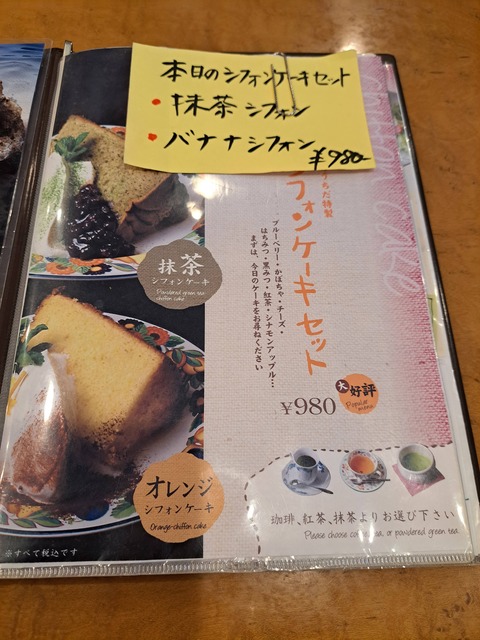 本日のシフォンケーキセット
・抹茶シフォン
・バナナシフォン
¥980-
うちだ特製
フォンケーキセット
ブルーベリー・かぼちゃ・チーズ・
はちみつ・黒みつ・紅茶・シナモンアップル…
まずは、今日のケーキをお尋ねください
抹茶
シフォンケーキ
Powdered green tea
chiffon cake
¥980
大好評
Popular
menu
オレンジ
シフォンケーキ
Orange-chiffon cake
珈琲、紅茶、抹茶よりお選び下さい
Please choose co a, or powdered green tea.
※すべて税込です